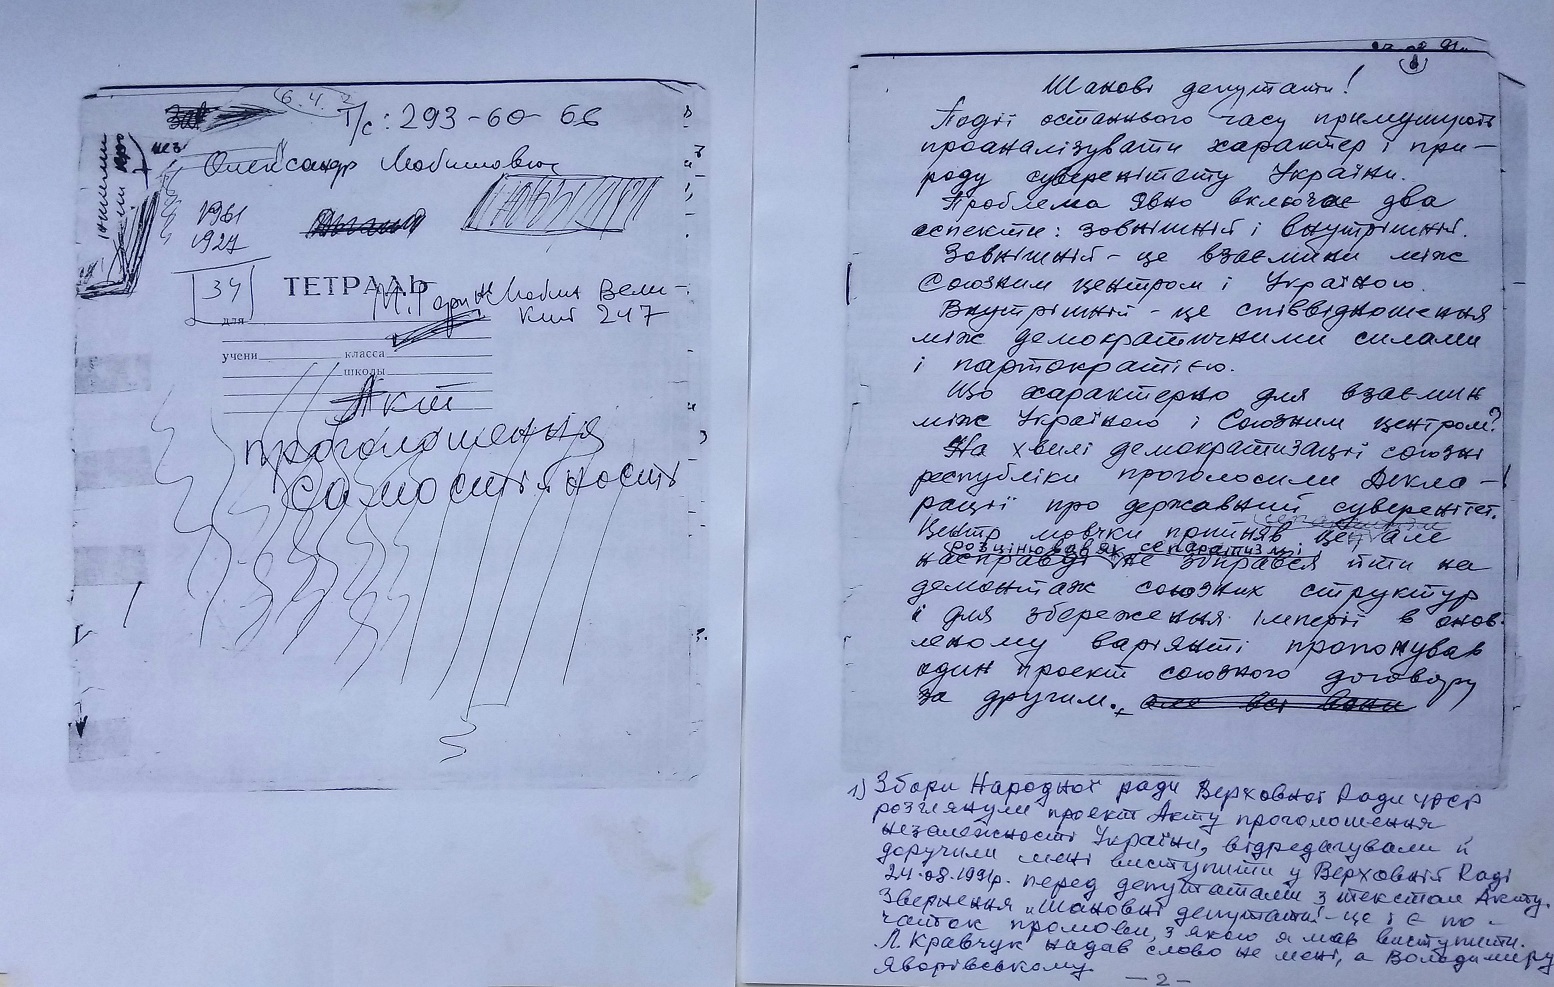 6.4.2
Т/с: 293-60-66
Олександр
1961
1927
34
ТЕТРАДЬ
Вели-
кий 247
для
учени класса
школы
Акт
проголошення
самостійності
Шанові депутати!
Події останнього часу примушують
проаналізувати характер і при-
роду суверенітету України.
Проблема явно включає два
аспекти: зовнішній і внутрішній.
Зовнішній - це взаємини між
Союзним центром і Україною.
Внутрішній - це співвідношення
між демократичними силами
і партократією.
Що характерно для взаємин
між Україною і Союзним центром?
На хвилі демократизації союзні
республіки проголосили Декла-
рації про державний суверенітет.
Центр мовчки прийняв це, але
розцінював як сепаратизм і
насправді не збирався йти на
демонтаж союзних структур
і для збереження імперії в онов-
леному варіянті пропонував
один проект союзного договору
за другим. але всі вони
1) Збори Народної ради Верховної Ради УРСР
розглянули проект Акту проголошення
незалежності України, відредагували й
доручили мені виступити у Верховній Раді
24.08.1991р. перед депутатами з текстом Акту.
Звернення „Шановні депутати!" - це і є по-
чаток промови, з якою я мав виступити.
Л. Кравчук надав слово не мені, а Володимиру
Яворівському
- 2 -